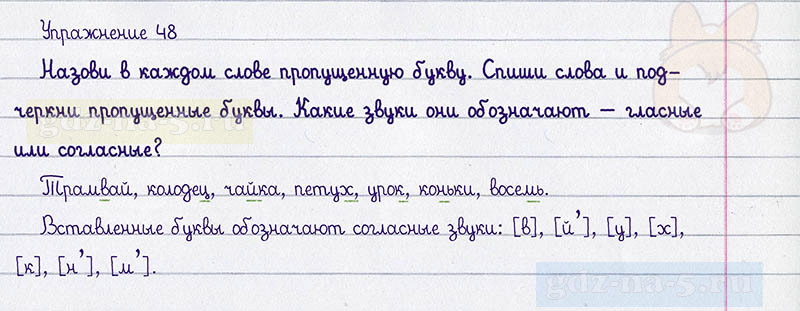 Упражнение 48
Назови в каждом слове пропущенную букву. Спиши слова и под-
черкни пропущенные буквы. Какие звуки они обозначают – гласные
или согласные?
Трамвай, колодец, чайка, петух, урок, коньки, восемь.
Вставленные буквы обозначают согласные звуки: [в], [й'], [ц], [х],
[к], [н'], [м'].
gdz-na-5.ru
gdz-na-5.ru